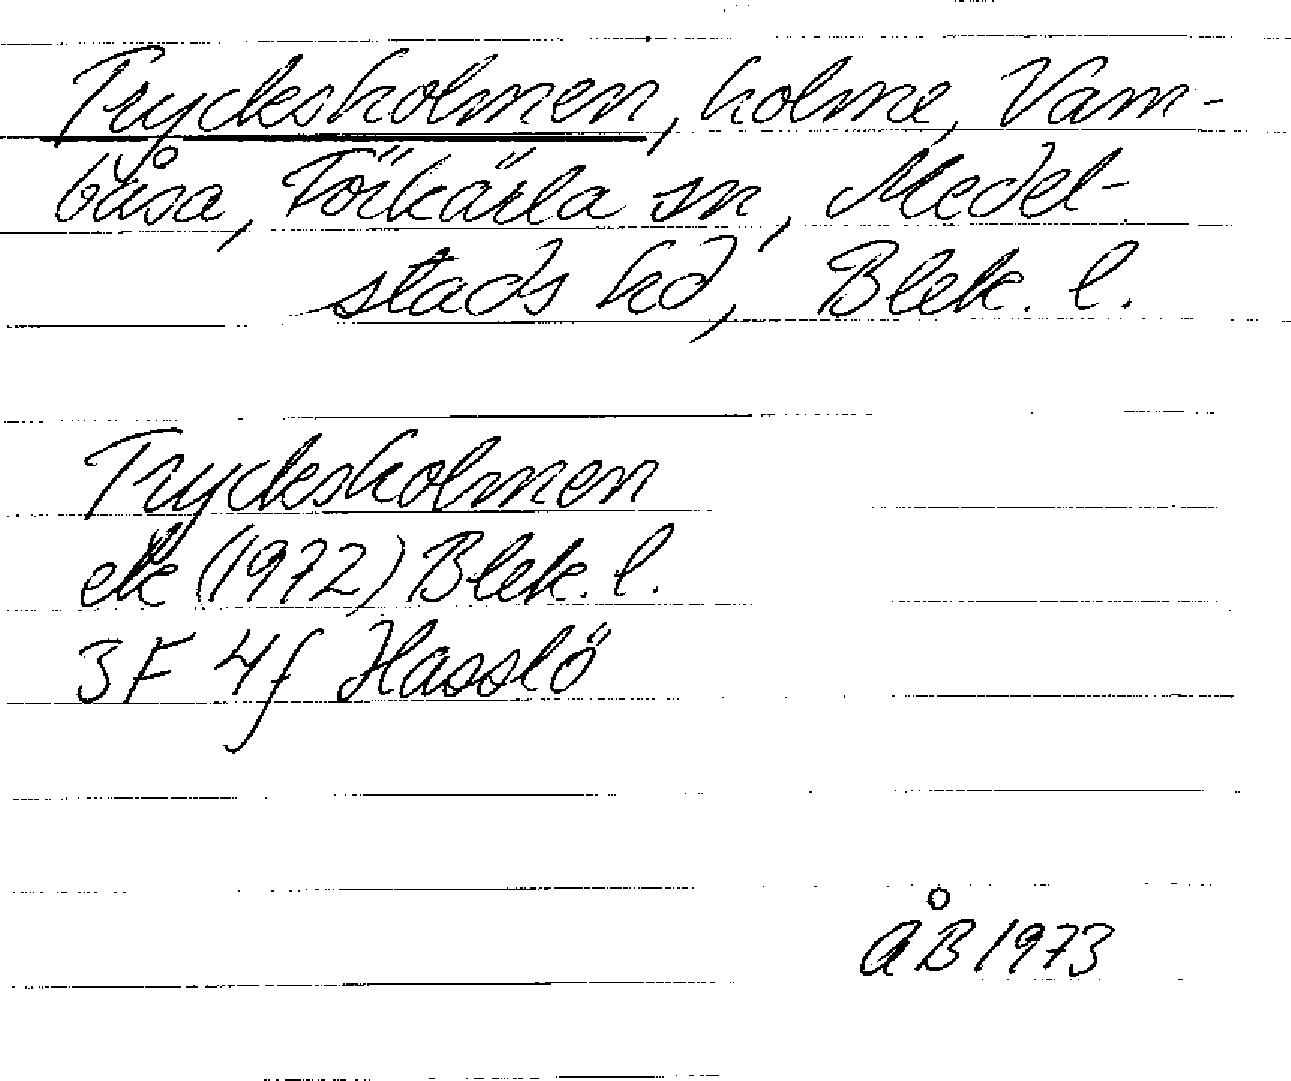 Trycksholmen, holme, Vam-
båsa, Förkärla sn, Medel-
stads hd, Blek. l.
Trycksholmen
ek (1972) Blek. l.
3F 4f Hasslö
ÅB 1973